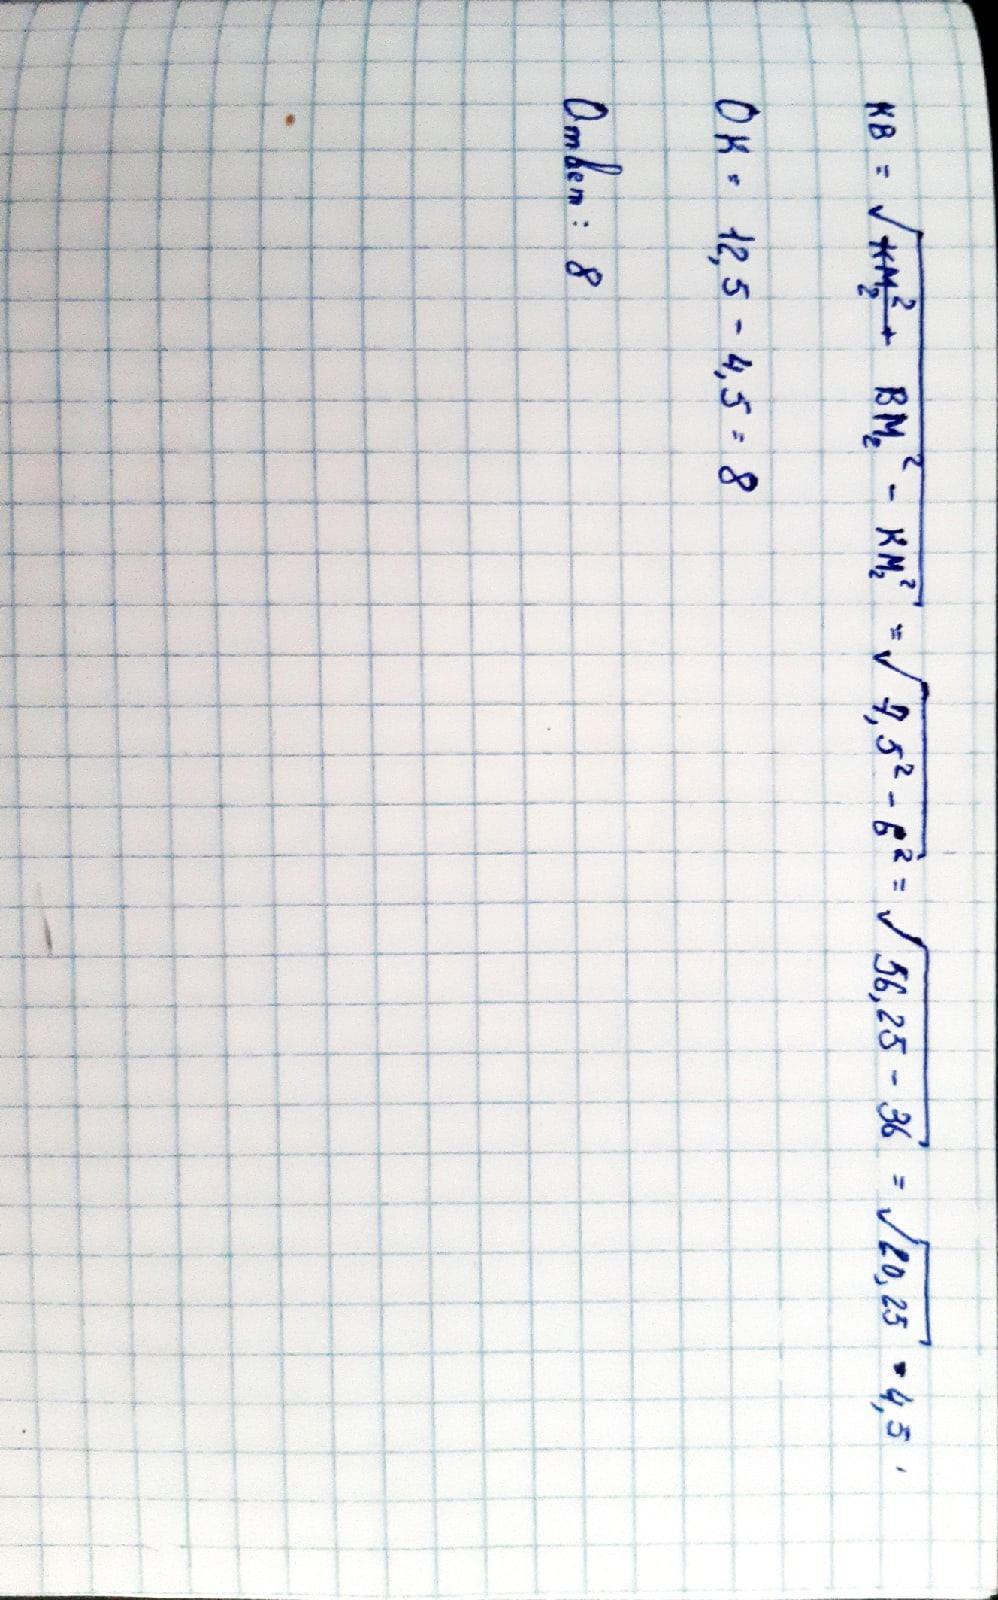 KB = √(K̶M̶₂²̶ ̶+̶ BM₂² - KM₂²) = √(7,5² - 6²) = √(56,25 - 36) = √(20,25) = 4,5.
OK = 12,5 - 4,5 = 8
Ответ: 8